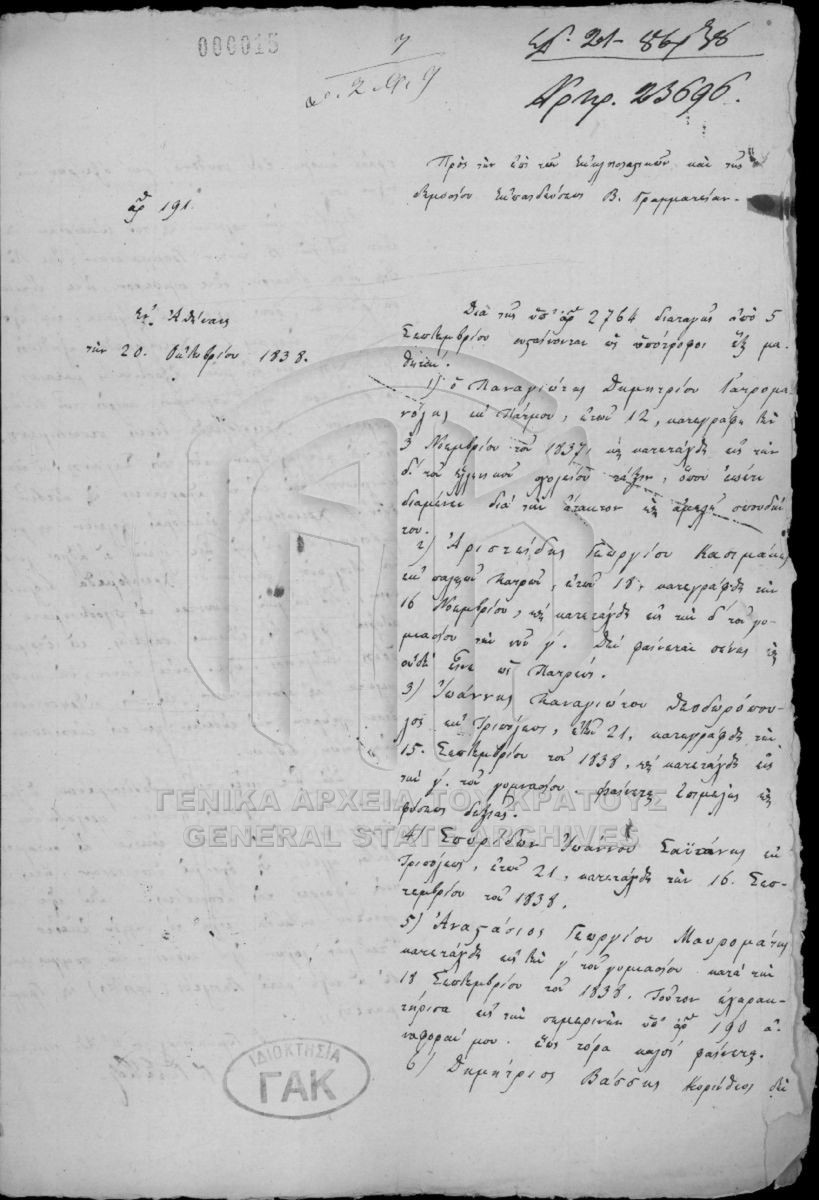 000015
7
Πρ. 23696.
Πρὸς τὴν ἐπὶ τῶν Ἐκκλησιαστικῶν καὶ τῆς
δημοσίου Ἐκπαιδεύσεως Β. Γραμματείαν.
ἀρ 191.
Ἐν Ἀθήναις
τὴν 20. Ὀκτωβρίου 1838.
Διὰ τῆς ὑπ' ἀρ 2764 διαταγῆς ἀπὸ 5
Σεπτεμβρίου ὡς ὑπότροφοι ἓξ μα-
θηταί.
1) ὁ Παναγιώτης Δημητρίου Πατρομα-
νόλης ἐκ Πάτμου, ἐτῶν 12, κατεγράφη τὴν
3 Νοεμβρίου τοῦ 1837, κ κατετάχθη εἰς τὴν
δ. τοῦ ἑλληνικοῦ σχολείου τάξιν, ὅπου ἔτι
διαμένει διὰ τὴν ἄτακτον κ ἀμελῆ σπουδήν
του.
2) Ἀριστείδης Γεωργίου
ἐκ παλαιῶν Πατρῶν, ἐτῶν 18, κατεγράφθη τὴν
16 Νοεμβρίου, κ κατετάχθη εἰς τὴν δ' τοῦ γυ-
μνασίου τὴν νῦν γ'. Δὲν φαίνεται πένης κ
οὐδὲ εἶνε ὡς Πατρεύς.
3) Ἰωάννης Παναγιώτου Θεοδωρόπου-
λος ἐκ Τριπόλεως, ἐτῶν 21, κατεγράφθη τὴν
15. Σεπτεμβρίου τοῦ 1838, κ κατετάχθη εἰς
τὴν γ'. τοῦ γυμνασίου. φαίνετε ἐπιμελὴς κ
φύσεως δεξιᾶς.
4) Σπυρίδων Ἰωάννου Σαϊτάνης ἐκ
Τριπόλεως, ἐτῶν 21, κατετάχθη τὴν 16. Σεπ-
τεμβρίου τοῦ 1838.
5) Ἀναστάσιος Γεωργίου Μαυρομάτης
κατετάχθη εἰς τὴν γ' τοῦ γυμνασίου κατὰ τὴν
18 Σεπτεμβρίου τοῦ 1838. Τοῦτον ἐχαρακ-
τήρισα εἰς τὴν σημερινὴν ὑπ' ἀρ 190 ἀ-
ναφοράν μου. ἕως τώρα καλὸς φαίνετε.
6) Δημήτριος Βάσσης Κορίνθιος δὲν
ΓΕΝΙΚΑ ΑΡΧΕΙΑ ΤΟΥ ΚΡΑΤΟΥΣ
GENERAL STATE ARCHIVES
ΙΔΙΟΚΤΗΣΙΑ
ΓΑΚ